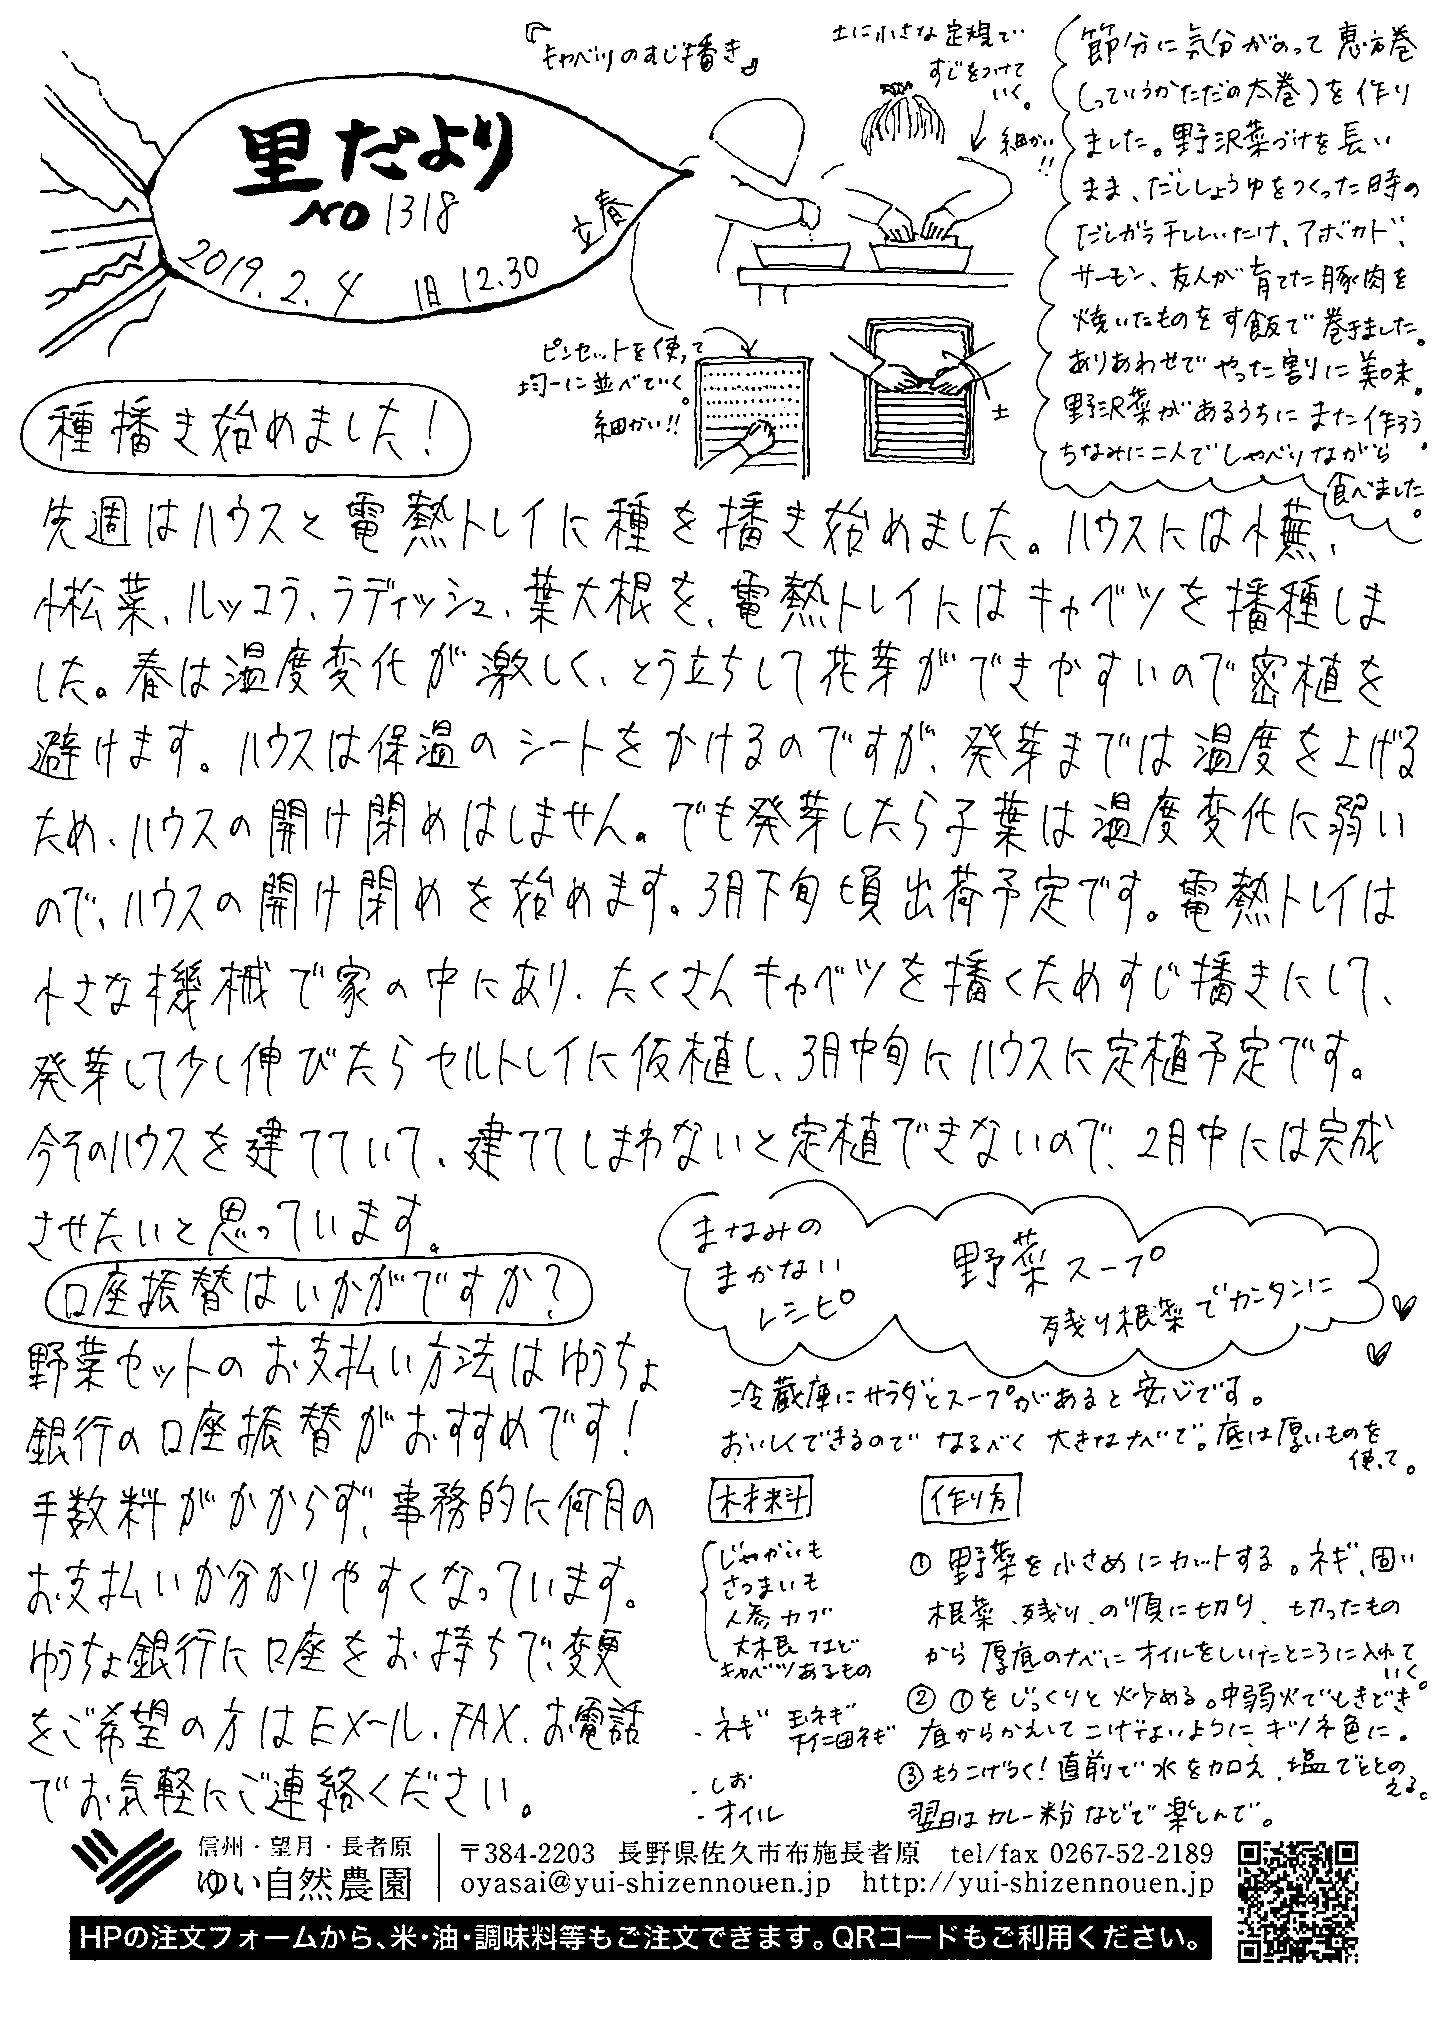 里だより
NO 1318
2019.2.4 旧12.30 立春
『キャベツのすじ播き』
土に小さな定規で
すじをつけて
いく。
細かい!!
ピンセットを使って
均一に並べていく。
細かい!!
土
節分に気分がのって恵方巻
(っていうかただの太巻)を作り
ました。野沢菜づけを長い
まま、だししょうゆをつくった時の
だしがら干ししいたけ、アボカド、
サーモン、友人が育てた豚肉を
焼いたものをす飯で巻きました。
ありあわせでやった割に美味。
野沢菜があるうちにまた作ろう。
ちなみに二人でしゃべりながら
食べました。
種播き始めました!
先週はハウスと電熱トレイに種を播き始めました。ハウスには小蕪、
小松菜、ルッコラ、ラディッシュ、葉大根を、電熱トレイにはキャベツを播種しま
した。春は温度変化が激しく、とう立ちして花芽ができやすいので密植を
避けます。ハウスは保温のシートをかけるのですが、発芽までは温度を上げる
ため、ハウスの開け閉めはしません。でも発芽したら子葉は温度変化に弱い
ので、ハウスの開け閉めを始めます。3月下旬頃出荷予定です。電熱トレイは
小さな機械で家の中にあり、たくさんキャベツを播くためすじ播きにして、
発芽して少し伸びたらセルトレイに仮植し、3月中旬にハウスに定植予定です。
今そのハウスを建てていて、建ててしまわないと定植できないので、2月中には完成
させたいと思っています。
口座振替はいかがですか?
野菜セットのお支払い方法はゆうちょ
銀行の口座振替がおすすめです!
手数料がかからず、事務的に何月の
お支払いか分かりやすくなっています。
ゆうちょ銀行に口座をお持ちで、変更
をご希望の方はEメール、FAX、お電話
でお気軽にご連絡ください。
まなみの
まかない
レシピ
野菜スープ
残り根菜でカンタンに
冷蔵庫にサラダとスープがあると安心です。
おいしくできるのでなるべく大きなナベで。底は厚いものを
使って。
材料
じゃがいも
さつまいも
人参カブ
大根などほど
キャベツあるもの
・ネギ 玉ネギ
下仁田ネギ
・しお
・オイル
作り方
① 野菜を小さめにカットする。ネギ、固い
根菜、残り、の順に切り、切ったもの
から厚底のナベにオイルをしいたところに入れて
いく。
② ①をじっくりと火炒める。中弱火でときどき
底からかえしてこげないように、キツネ色に。
③ もうこげちく!直前で水を加え、塩でととの
える。
翌日はカレー粉などで楽しんで。
信州・望月・長者原
ゆい自然農園
〒384-2203 長野県佐久市布施長者原 tel/fax 0267-52-2189
oyasai@yui-shizennouen.jp http://yui-shizennouen.jp
HPの注文フォームから、米・油・調味料等もご注文できます。QRコードもご利用ください。